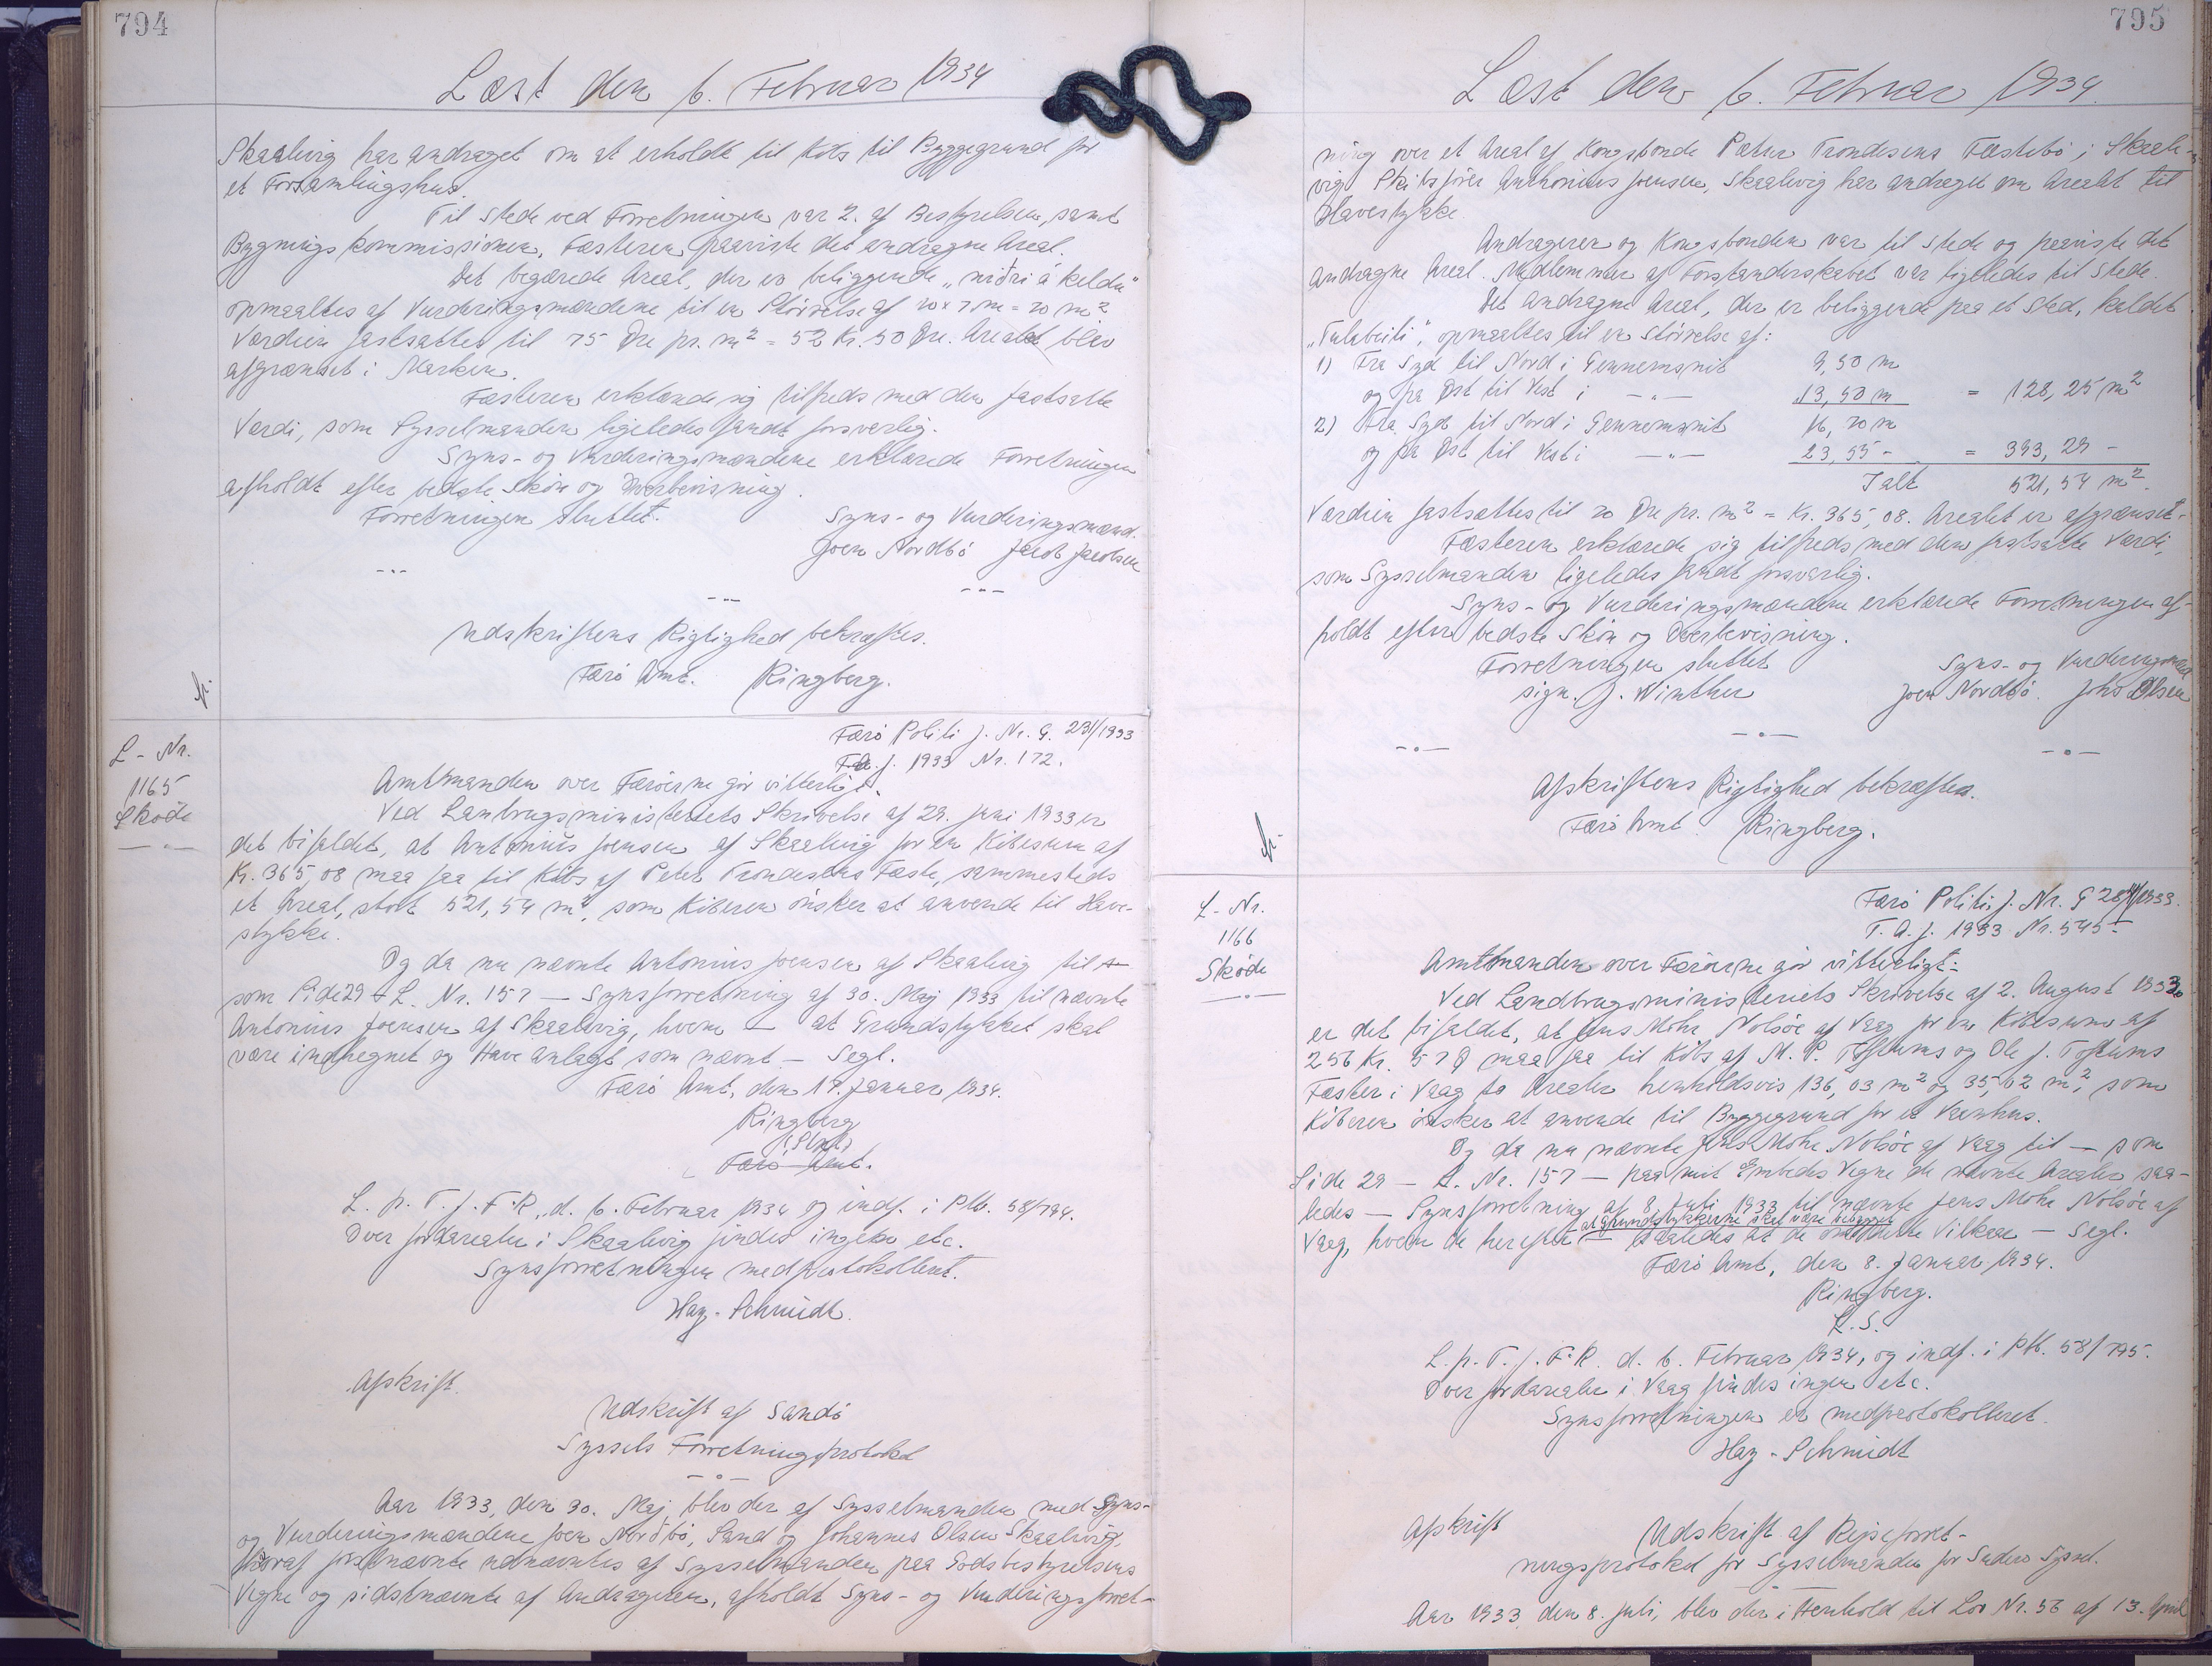 794
Læst den 6. Februar 1934
Skaalevig har andraget om at erholdt til Köbs til Byggegrund for
et Forsamlingshus.
Til Stede ved Forretningen var 2. af Bestyrelsen, samt
Bygningskommissionen, Fæsteren paaviste det andragne Areal.
Det begærede Areal, der er beliggende „niðri á keldu"
opmaaltes af Vurderingsmændene til en Störrelse af 10 x 7 m = 70 m²
Værdien fastsattes til 75 Øre pr. m² = 52 Kr. 50 Øre. Arealet blev
afgrænset i Marken.
Fæsteren erklærede sig tilfreds med den fastsatte
Værdi, som Sysselmanden ligeledes fandt forsvarlig.
Syns- og Vurderingsmændene erklærede Forretningen
afholdt efter bedste Skön og Overbevisning.
Forretningen sluttet.
Syns- og Vurderingsmænd.
Joen Nordbö Jacob Jacobsen
Udskriftens Rigtighed bekræftes.
Færö Amt. Ringberg.
L-Nr.
1165
Sköde
Færö Politi J. Nr. G. 231/1933
F.A.J. 1933 Nr. 172.
Amtmanden over Færöerne gör vitterligt:
Ved Lanbrugsministeriets Skrivelse af 29. Juni 1933 er
det bifaldet, at Antonius Joensen af Skaalevig for en Köbesum af
Kr. 365,08 maa faa til Köbs af Peter Trondesens Fæste, sammesteds
et Areal, stort 521,54 m², som Köberen önsker at anvende til Have-
stykke.
Og da nu nævnte Antonius Joensen af Skaalevig til
som Side 29 L. Nr. 157 — Synsforretning af 30. Maj 1933 til nævnte
Antonius Joensen af Skaalevig, hvem — at Grundstykket skal
være indhegnet og Have anlagt som nævnt — Segl.
Færö Amt, den 17. Januar 1934.
Ringberg
Færö Amt.
L. p. T. f. F.R. d. 6. Februar 1934 og indf. i Ptb. 58/794.
Over Jordarealer i Skaalevig findes ingen etc.
Synsforretningen medprotokolleret.
Hay-Schmidt.
Afskrift.
Udskrift af Sandö
Syssels Forretningsprotokol
Aar 1933, den 30. Maj blev der af Sysselmanden med Syns-
og Vurderingsmændene Joen Nordbö, Sand og Johannes Olsen Skaalevig,
hvoraf förstnævnte udnævntes af Sysselmanden paa Godsbestyrelsens
Vegne og sidstnævnte af Andrageren, afholdt Syns- og Vurderingsforret-
795
Læst den 6. Februar 1934.
ning over et Areal af Kongsbonde Peter Trondesens Fæstebö i Skaale-
vig. Skibsförer Anthonius Joensen, Skaalevig har andraget om Arealet til
Havestykke.
Andrageren og Kongsbonden var til Stede og paaviste det
andragne Areal. Medlemmer af Forstanderskabet var ligeledes til Stede.
Det andragne Areal, der er beliggende paa et Sted, kaldet
opmaaltes til en Störrelse af:
1) Fra Syd til Nord i Gennemsnit 9,50 m
og fra Øst til Vest i —"— 13,50 m = 128,25 m²
2) Fra Syd til Nord i Gennemsnit 16,70 m
og fra Øst til Vest i —"— 23,55 - = 393,29 -
Ialt 521,54 m².
Værdien fastsættes til 70 Øre pr. m² = Kr. 365,08. Arealet er afgrænset.
Fæsteren erklærede sig tilfreds med den fastsatte Værdi,
som Sysselmanden ligeledes fandt forsvarlig.
Syns- og Vurderingsmændene erklærede Forretningen af-
holdt efter bedste Skön og Overbevisning.
Forretningen sluttet
Syns- og Vurderingsmænd
sign. J. Winther
Joen Nordbö. Johs Olsen
Afskriftens Rigtighed bekræftes.
Færö Amt. Ringberg.
L-Nr.
1166
Sköde
Færö Politi J. Nr. G
F.A.J. 1933 Nr. 545-
Amtmanden over Færöerne gör vitterligt:
Ved Landbrugsministeriets Skrivelse af 2. August 1933
er det bifaldet, at Jens Mohr Nolsöe af Vaag for en Köbesum af
256 Kr. 57 Ø maa faa til Köbs af M. P. Toftums og Ole J. Toftums
Fæster i Vaag to Arealer henholdsvis 136,03 m² og 35,02 m², som
Köberen önsker at anvende til Byggegrund for et Vaanhus.
Og da nu nævnte Jens Mohr Nolsöe af Vaag til — som
Side 29 — L. Nr. 157 — paa mit Embeds Vegne de nævnte Arealer saa-
ledes — Synsforretning af 8. Juli 1933 til nævnte Jens Mohr Nolsöe af
at Grundstykkerne skal være bebygget
Vaag, hvem de herefter — saaledes at de omtalte Vilkaar — Segl.
Færö Amt, den 8. Januar 1934.
Ringberg.
L.S.
L. p. T. f. F.R. d. 6. Februar 1934, og indf. i Ptb. 58/795.
Over Jordarealer i Vaag findes ingen etc.
Synsforretningen er medprotokolleret.
Hay-Schmidt
Afskrift
Udskrift af Rejseforret-
ningsprotokol for Sysselmanden for Suderö Syssel.
Aar 1933, den 8. Juli, blev der i Henhold til Lov Nr. 56 af 13. April